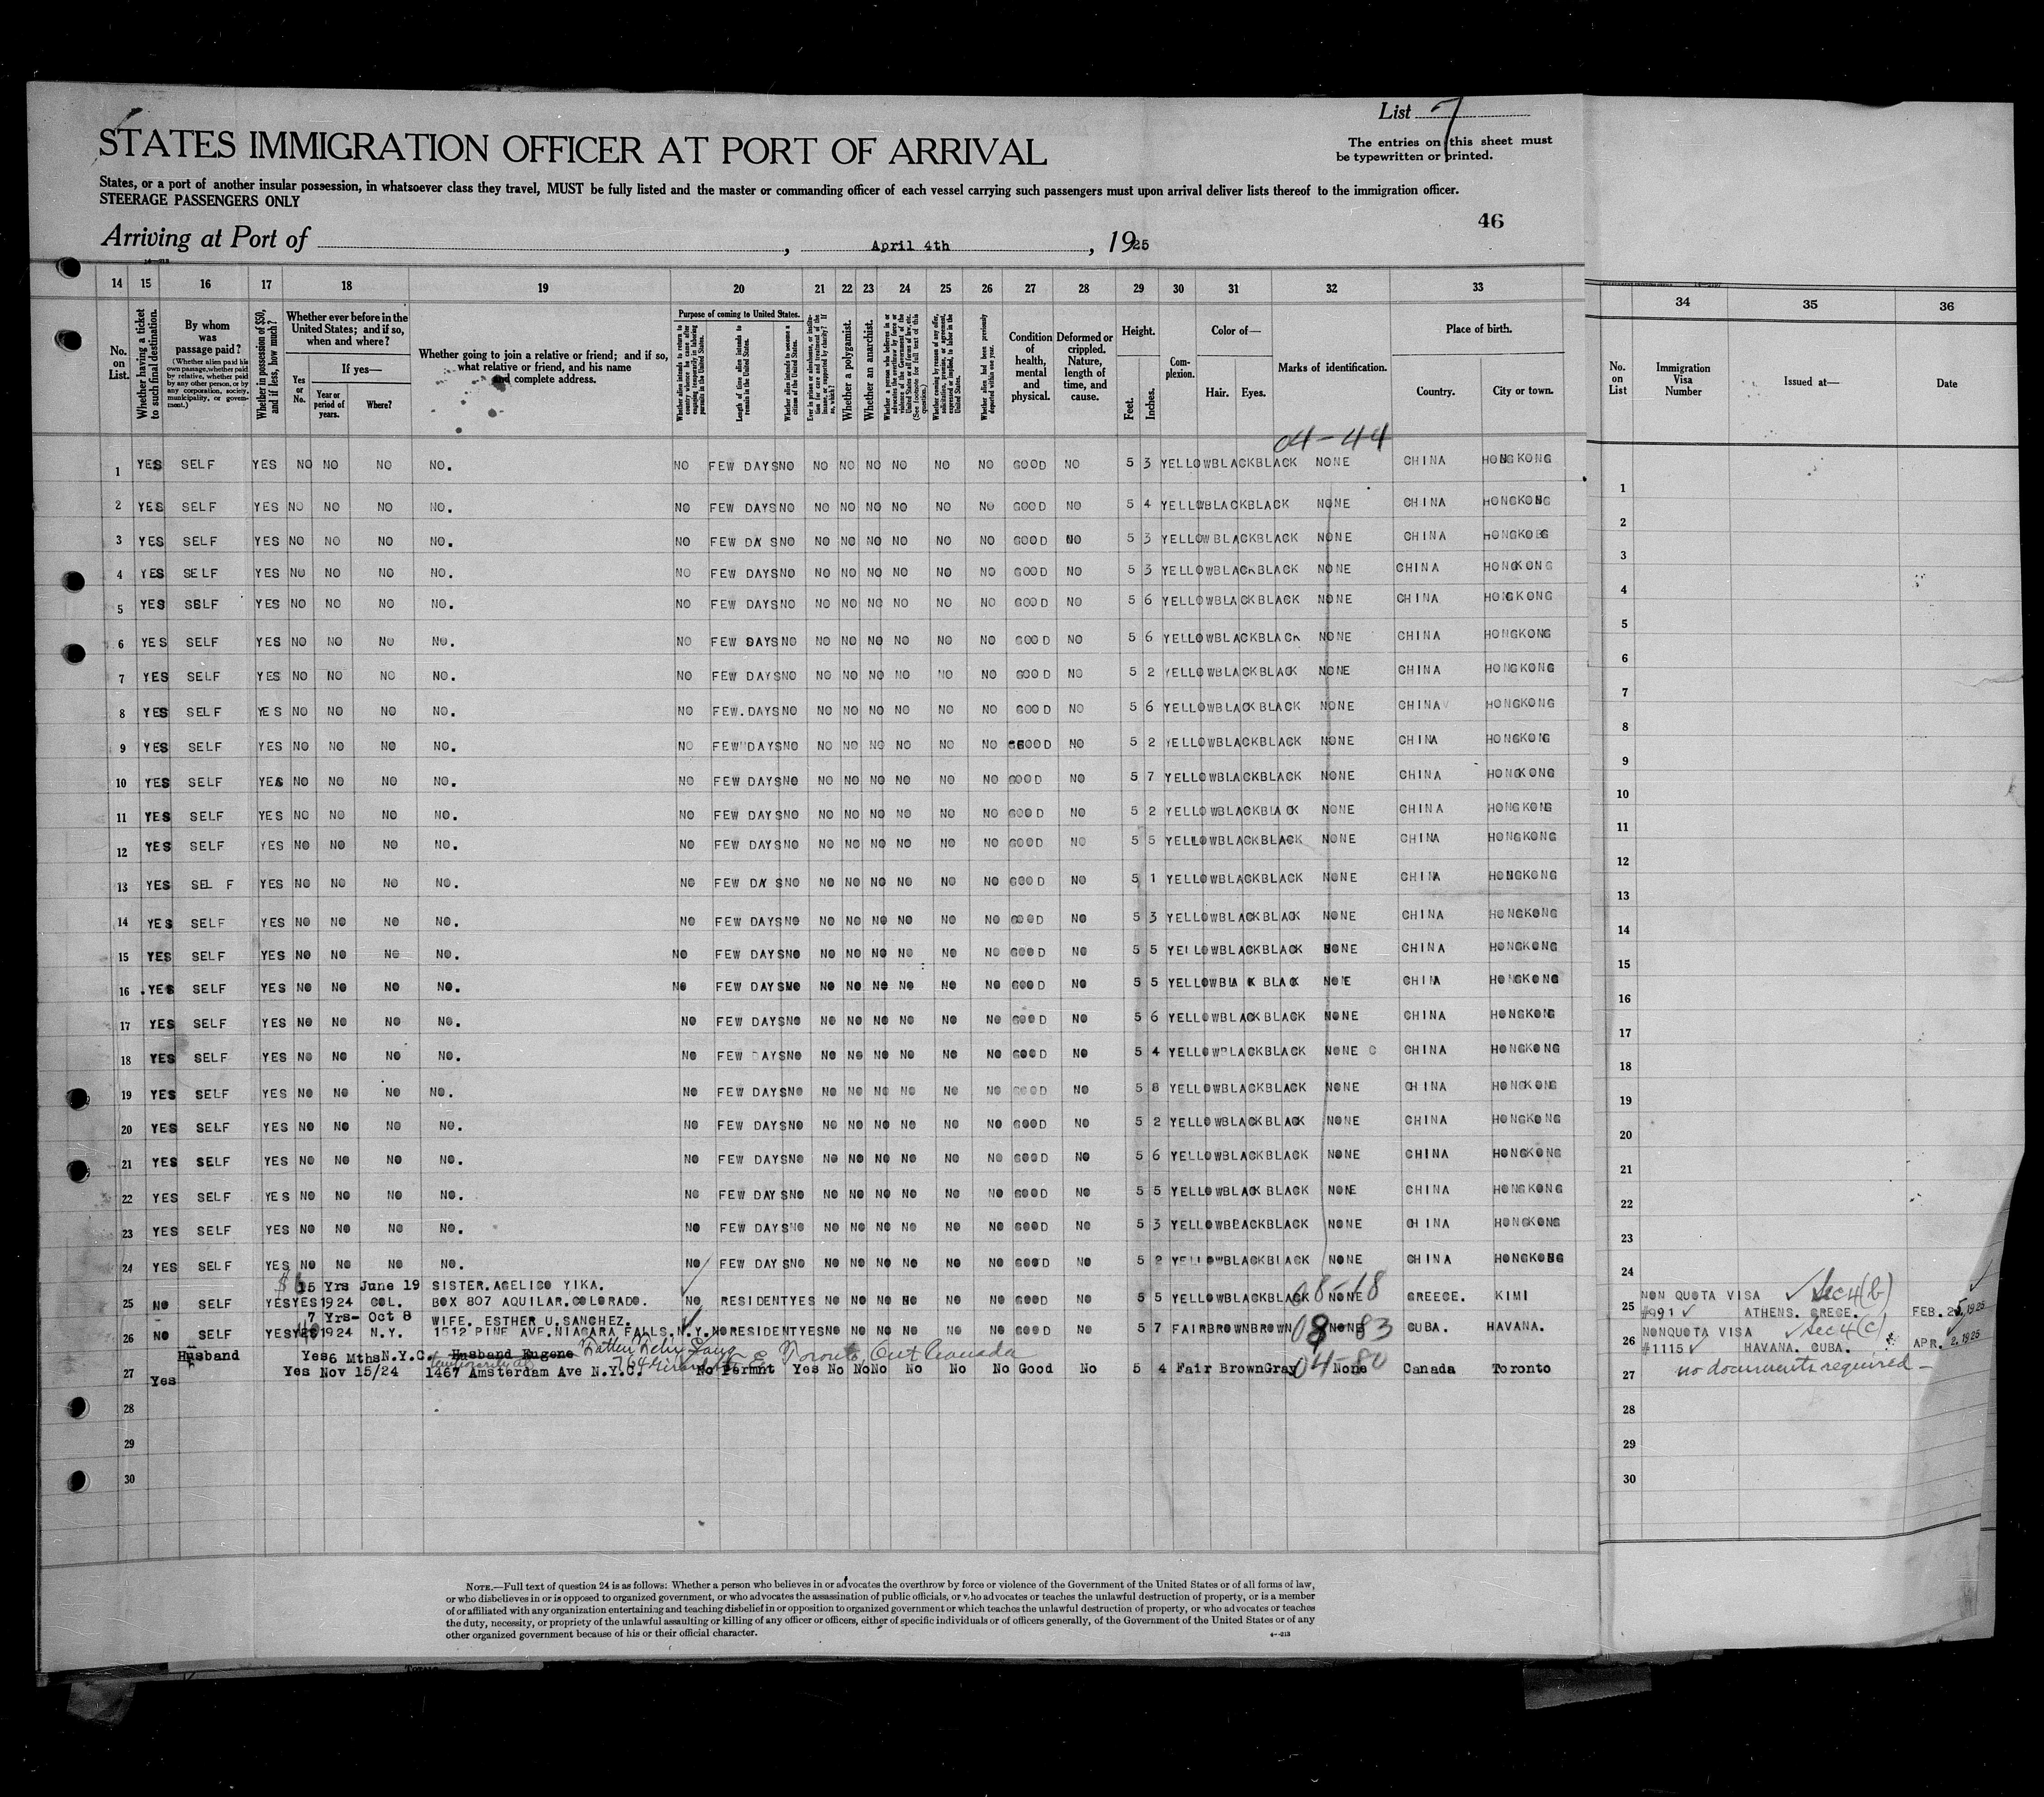 List 7
The entries on this sheet must
be typewritten or printed.
STATES IMMIGRATION OFFICER AT PORT OF ARRIVAL
States, or a port of another insular possession, in whatsoever class they travel, MUST be fully listed and the master or commanding officer of each vessel carrying such passengers must upon arrival deliver lists thereof to the immigration officer.
STEERAGE PASSENGERS ONLY
46
Arriving at Port of , April 4th , 1925
14 15 16 17 18 19 20 21 22 23 24 25 26 27 28 29 30 31 32 33 34 35 36
No. on List.
Whether having a ticket to such final destination.
By whom was passage paid?
(Whether alien paid his own passage, whether paid by relative, whether paid by any other person, or by any corporation, society, municipality, or government.)
Whether in possession of $50, and if less, how much?
Whether ever before in the United States; and if so, when and where?
Yes or No.
If yes—
Year or period of years.
Where?
Whether going to join a relative or friend; and if so, what relative or friend, and his name and complete address.
Purpose of coming to United States.
Whether alien intends to return to country whence he came after engaging temporarily in laboring pursuits in the United States.
Length of time alien intends to remain in the United States.
Whether alien intends to become a citizen of the United States.
Whether a polygamist.
Whether an anarchist.
Condition of health, mental and physical.
Deformed or crippled. Nature, length of time, and cause.
Height.
Feet.
Inches.
Complexion.
Color of—
Hair.
Eyes.
Marks of identification.
Place of birth.
Country.
City or town.
No. on List
Immigration Visa Number
Issued at—
Date
04-44
1 YES SELF YES NO NO NO NO. NO FEW DAYS NO NO NO NO NO NO NO GOOD NO 5 3 YELLOW BLACK BLACK NONE CHINA HONGKONG 1
2 YES SELF YES NO NO NO NO. NO FEW DAYS NO NO NO NO NO NO NO GOOD NO 5 4 YELLOW BLACK BLACK NONE CHINA HONGKONG 2
3 YES SELF YES NO NO NO NO. NO FEW DAYS NO NO NO NO NO NO NO GOOD NO 5 3 YELLOW BLACK BLACK NONE CHINA HONGKONG 3
4 YES SELF YES NO NO NO NO. NO FEW DAYS NO NO NO NO NO NO NO GOOD NO 5 3 YELLOW BLACK BLACK NONE CHINA HONGKONG 4
5 YES SELF YES NO NO NO NO. NO FEW DAYS NO NO NO NO NO NO NO GOOD NO 5 6 YELLOW BLACK BLACK NONE CHINA HONGKONG 5
6 YES SELF YES NO NO NO NO. NO FEW DAYS NO NO NO NO NO NO NO GOOD NO 5 6 YELLOW BLACK BLACK NONE CHINA HONGKONG 6
7 YES SELF YES NO NO NO NO. NO FEW DAYS NO NO NO NO NO NO NO GOOD NO 5 2 YELLOW BLACK BLACK NONE CHINA HONGKONG 7
8 YES SELF YES NO NO NO NO. NO FEW.DAYS NO NO NO NO NO NO NO GOOD NO 5 6 YELLOW BLACK BLACK NONE CHINA HONGKONG 8
9 YES SELF YES NO NO NO NO. NO FEW DAYS NO NO NO NO NO NO NO GOOD NO 5 2 YELLOW BLACK BLACK NONE CHINA HONGKONG 9
10 YES SELF YES NO NO NO NO. NO FEW DAYS NO NO NO NO NO NO NO GOOD NO 5 7 YELLOW BLACK BLACK NONE CHINA HONGKONG 10
11 YES SELF YES NO NO NO NO. NO FEW DAYS NO NO NO NO NO NO NO GOOD NO 5 2 YELLOW BLACK BLACK NONE CHINA HONGKONG 11
12 YES SELF YES NO NO NO NO. NO FEW DAYS NO NO NO NO NO NO NO GOOD NO 5 5 YELLOW BLACK BLACK NONE CHINA HONGKONG 12
13 YES SELF YES NO NO NO NO. NO FEW DAYS NO NO NO NO NO NO NO GOOD NO 5 1 YELLOW BLACK BLACK NONE CHINA HONGKONG 13
14 YES SELF YES NO NO NO NO. NO FEW DAYS NO NO NO NO NO NO NO GOOD NO 5 3 YELLOW BLACK BLACK NONE CHINA HONGKONG 14
15 YES SELF YES NO NO NO NO. NO FEW DAYS NO NO NO NO NO NO NO GOOD NO 5 5 YELLOW BLACK BLACK NONE CHINA HONGKONG 15
16 YES SELF YES NO NO NO NO. NO FEW DAYS NO NO NO NO NO NO NO GOOD NO 5 5 YELLOW BLACK BLACK NONE CHINA HONGKONG 16
17 YES SELF YES NO NO NO NO. NO FEW DAYS NO NO NO NO NO NO NO GOOD NO 5 6 YELLOW BLACK BLACK NONE CHINA HONGKONG 17
18 YES SELF YES NO NO NO NO. NO FEW DAYS NO NO NO NO NO NO NO GOOD NO 5 4 YELLOW BLACK BLACK NONE C CHINA HONGKONG 18
19 YES SELF YES NO NO NO NO. NO FEW DAYS NO NO NO NO NO NO NO GOOD NO 5 8 YELLOW BLACK BLACK NONE CHINA HONGKONG 19
20 YES SELF YES NO NO NO NO. NO FEW DAYS NO NO NO NO NO NO NO GOOD NO 5 2 YELLOW BLACK BLACK NONE CHINA HONGKONG 20
21 YES SELF YES NO NO NO NO. NO FEW DAYS NO NO NO NO NO NO NO GOOD NO 5 6 YELLOW BLACK BLACK NONE CHINA HONGKONG 21
22 YES SELF YES NO NO NO NO. NO FEW DAYS NO NO NO NO NO NO NO GOOD NO 5 5 YELLOW BLACK BLACK NONE CHINA HONGKONG 22
23 YES SELF YES NO NO NO NO. NO FEW DAYS NO NO NO NO NO NO NO GOOD NO 5 3 YELLOW BLACK BLACK NONE CHINA HONGKONG 23
24 YES SELF YES NO NO NO NO. NO FEW DAYS NO NO NO NO NO NO NO GOOD NO 5 2 YELLOW BLACK BLACK NONE CHINA HONGKONG 24
15 Yrs June 19 SISTER.AGELICO YIKA. 08-18 NON QUOTA VISA Sec 4(b)
25 NO SELF YES YES 1924 COL. BOX 807 AQUILAR.COLORADO. NO RESIDENT YES NO NO NO NO NO NO GOOD NO 5 5 YELLOW BLACK BLACK NONE GREECE. KIMI 25 #991 ATHENS. GRECE. FEB. 25, 1925
7 Yrs- Oct 8 WIFE. ESTHER U.SANCHEZ. 08-83 NONQUOTA VISA Sec 4(c)
26 NO SELF YES YES 1924 N.Y. 1512 PINE AVE.NIAGARA FALLS.N.Y. NO RESIDENT YES NO NO NO NO NO NO GOOD NO 5 7 FAIR BROWN BROWN NONE CUBA. HAVANA. 26 #1115 HAVANA. CUBA. APR. 2, 1925
Husband Yes 6 Mths N.Y.C. Husband Eugene Father Toronto, Ont Canada 04-80 no documents required
27 Yes Yes Nov 15/24 1467 Amsterdam Ave N.Y.C. No Permnt Yes No No No No No No Good No 5 4 Fair Brown Gray None Canada Toronto 27
28 28
29 29
30 30
NOTE.—Full text of question 24 is as follows: Whether a person who believes in or advocates the overthrow by force or violence of the Government of the United States or of all forms of law,
or who disbelieves in or is opposed to organized government, or who advocates the assassination of public officials, or who advocates or teaches the unlawful destruction of property, or is a member
of or affiliated with any organization entertaining and teaching disbelief in or opposition to organized government or which teaches the unlawful destruction of property, or who advocates or teaches
the duty, necessity, or propriety of the unlawful assaulting or killing of any officer or officers, either of specific individuals or of officers generally, of the Government of the United States or of any
other organized government because of his or their official character.